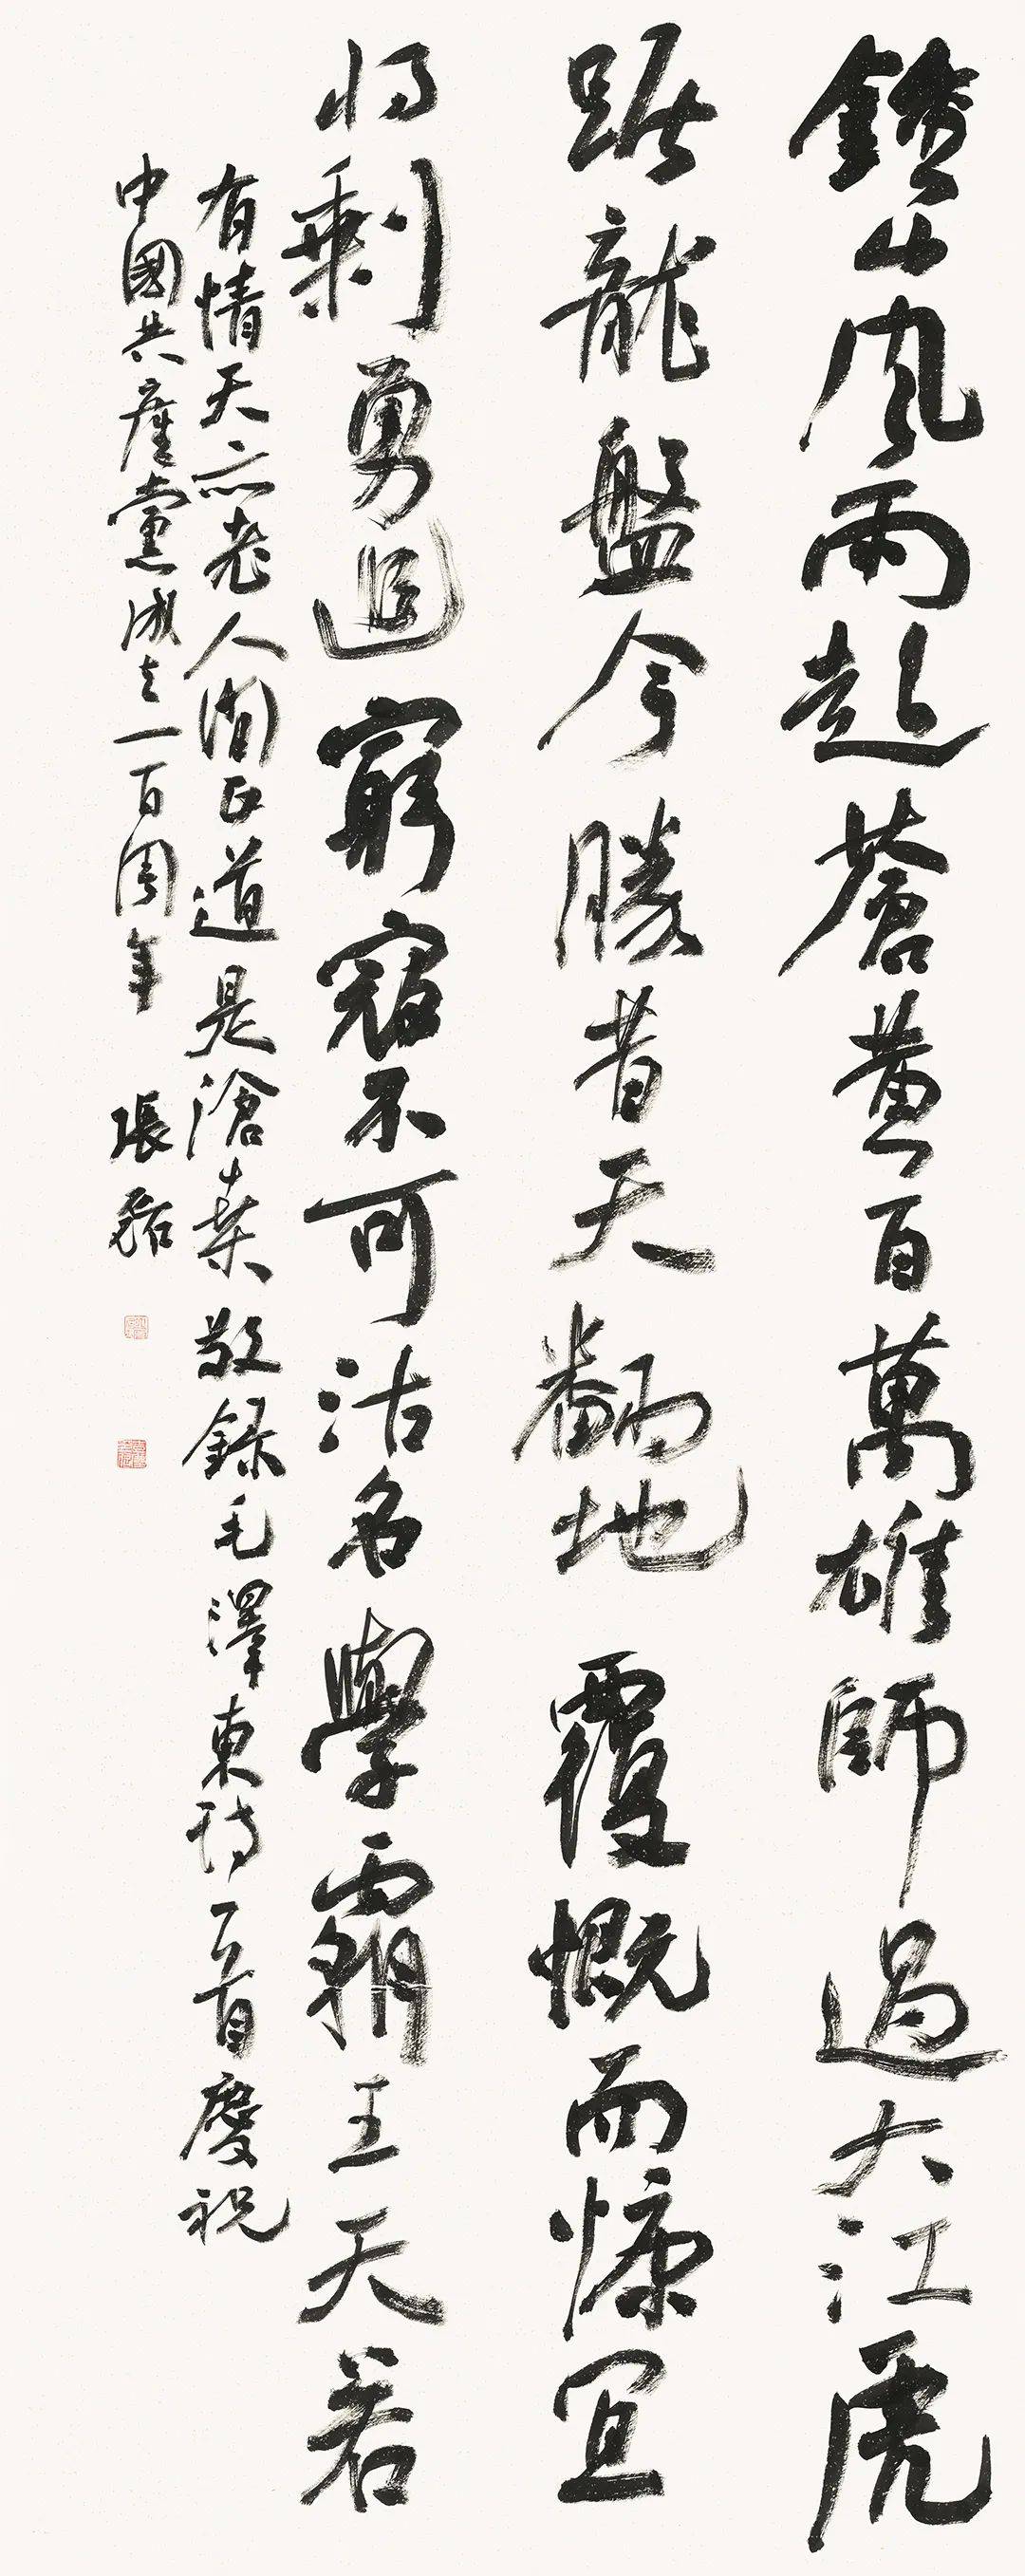 鍾山風雨起蒼黃百萬雄師過大江虎
踞龍盤今勝昔天翻地覆慨而慷宜
将剩勇追窮寇不可沽名學霸王天若
有情天亦老人間正道是滄桑敬錄毛澤東詩一首慶祝
中國共產黨成立一百周年 張